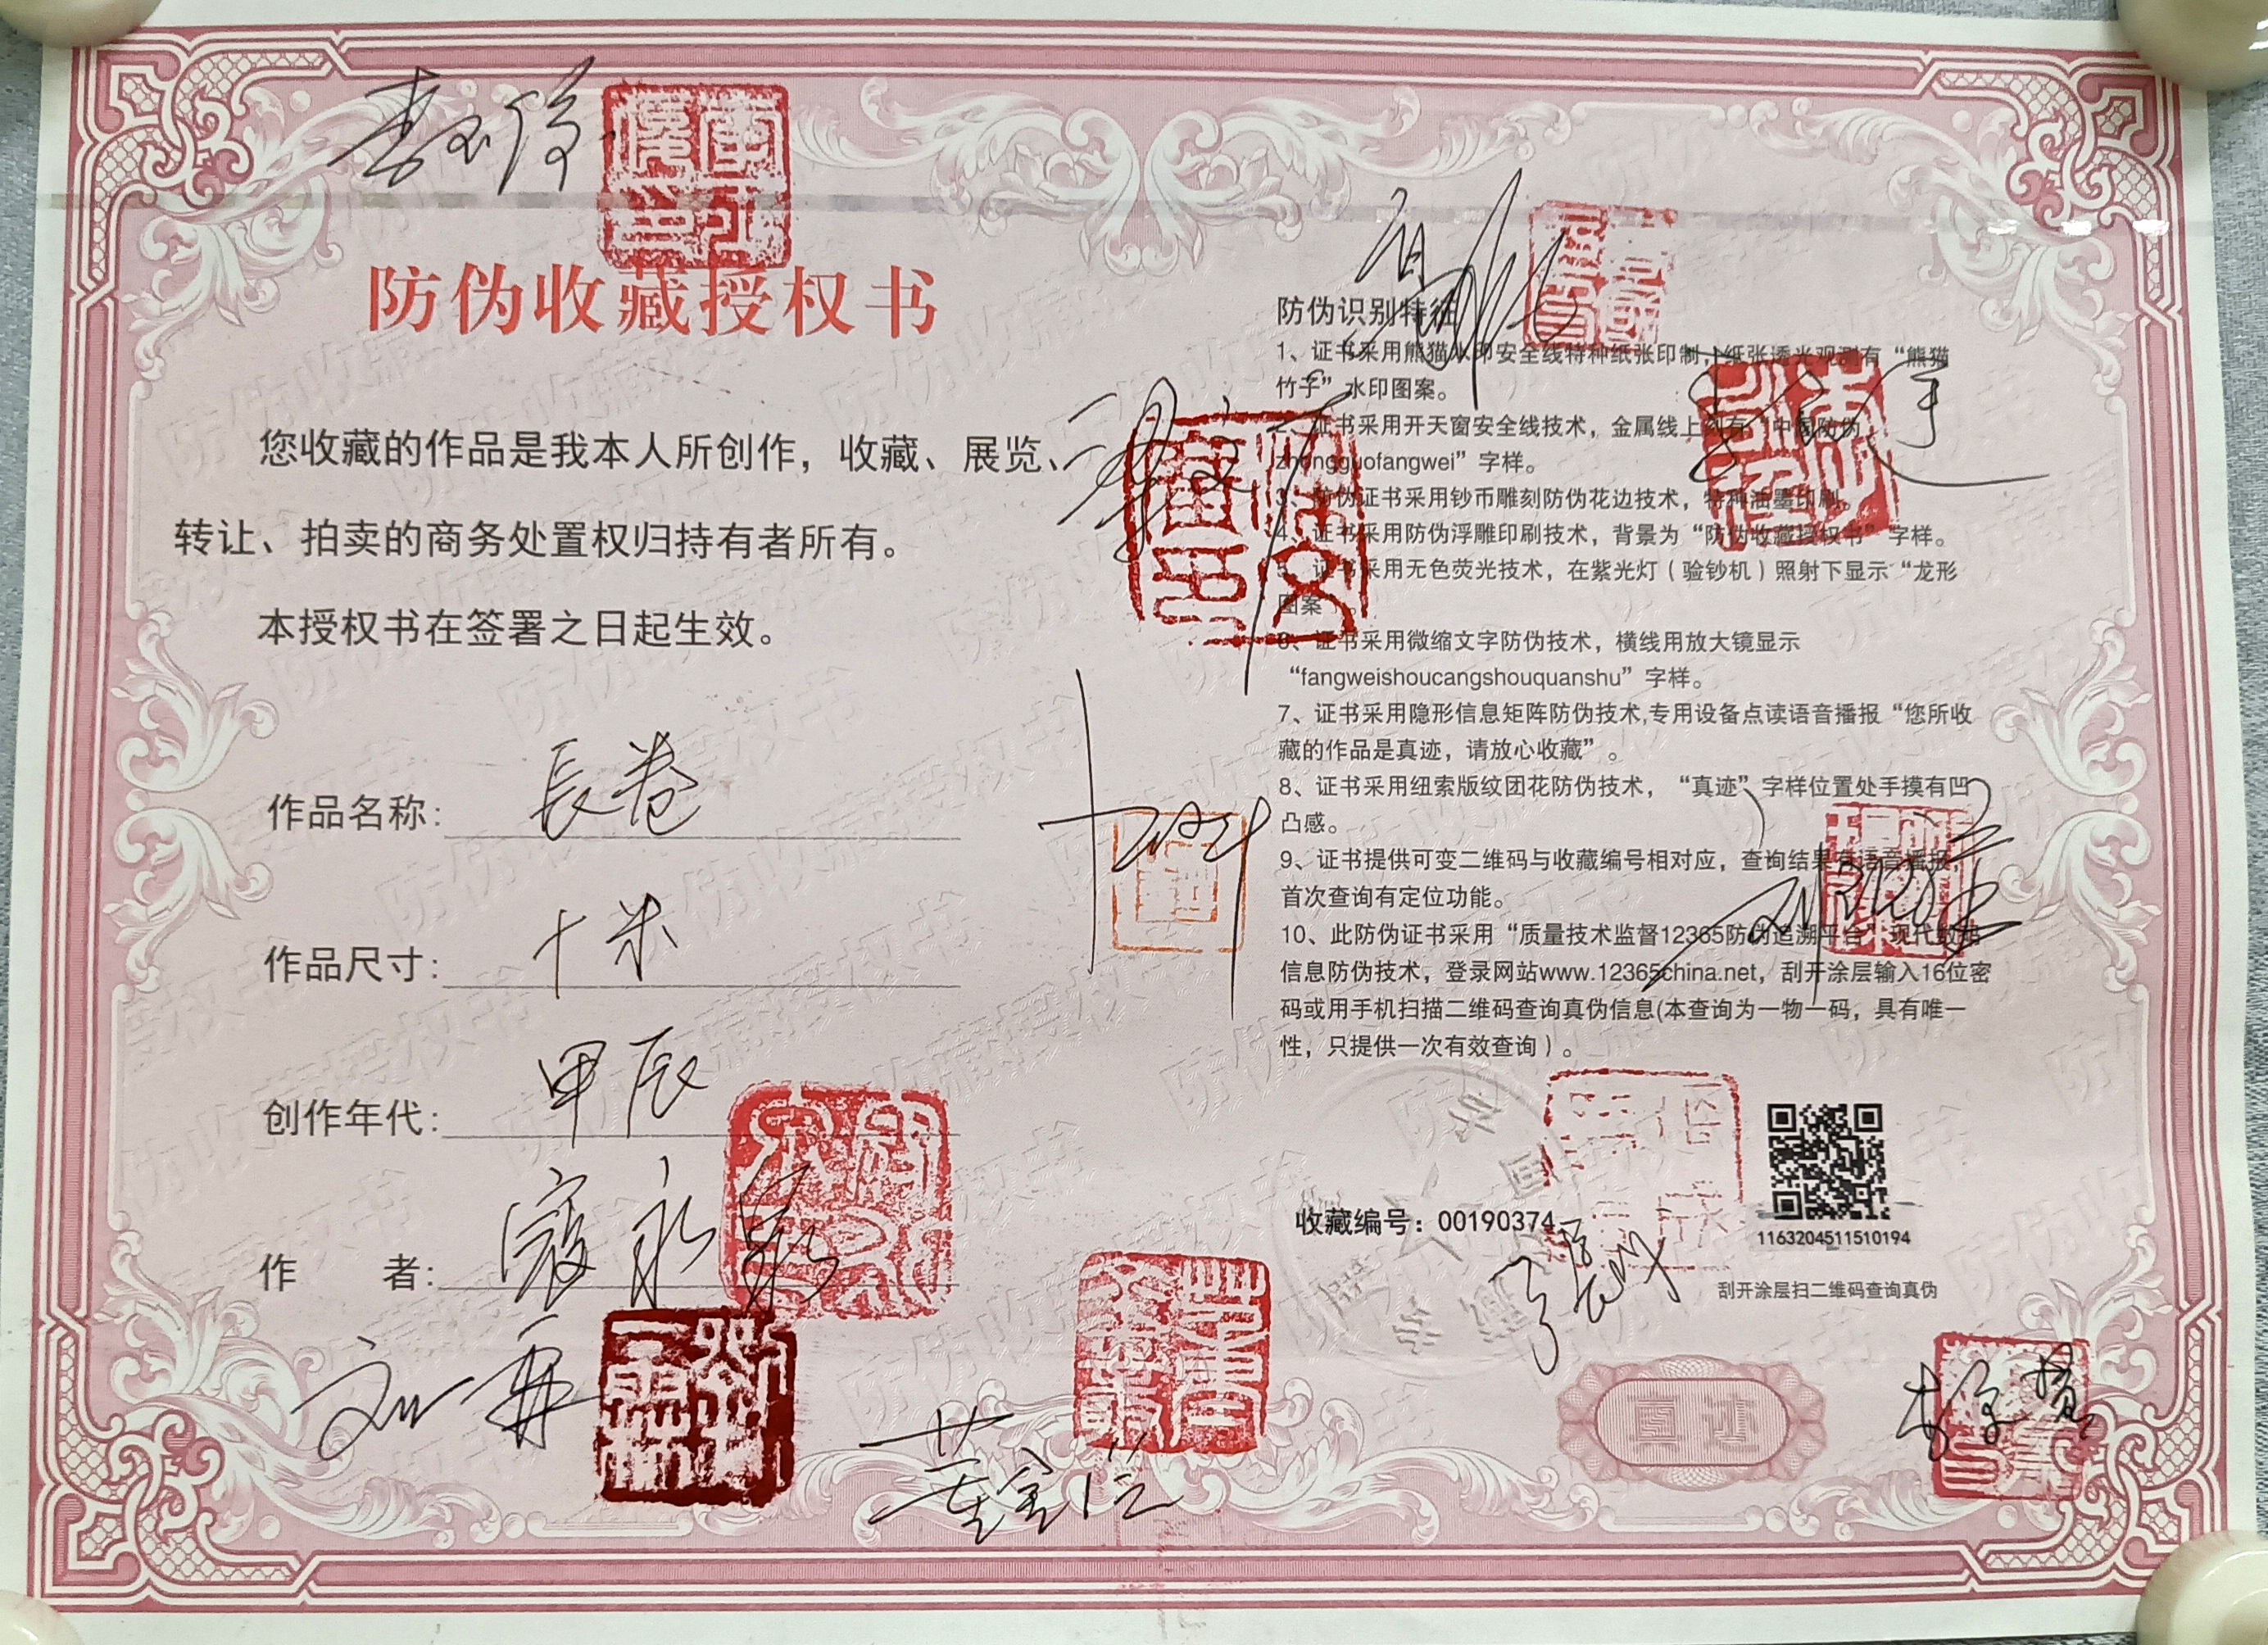 防伪收藏授权书
您收藏的作品是我本人所创作，收藏、展览、
转让、拍卖的商务处置权归持有者所有。
本授权书在签署之日起生效。
作品名称：長卷
作品尺寸：十米
创作年代：甲辰
作 者：寇永泉
防伪识别特征
1、证书采用熊猫水印安全线特种纸张印制，纸张透光观测有“熊猫
竹子”水印图案。
2、证书采用开天窗安全线技术，金属线上印有“中国防伪
zhongguofangwei”字样。
3、防伪证书采用钞币雕刻防伪花边技术，特种油墨印刷。
4、证书采用防伪浮雕印刷技术，背景为“防伪收藏授权书”字样。
5、证书采用无色荧光技术，在紫光灯（验钞机）照射下显示“龙形
图案”。
6、证书采用微缩文字防伪技术，横线用放大镜显示
“fangweishoucangshouquanshu”字样。
7、证书采用隐形信息矩阵防伪技术,专用设备点读语音播报“您所收
藏的作品是真迹，请放心收藏”。
8、证书采用纽索版纹团花防伪技术，“真迹”字样位置处手摸有凹
凸感。
9、证书提供可变二维码与收藏编号相对应，查询结果有语音播报，
首次查询有定位功能。
10、此防伪证书采用“质量技术监督12365防伪追溯平台”现代数码
信息防伪技术，登录网站www.12365china.net，刮开涂层输入16位密
码或用手机扫描二维码查询真伪信息(本查询为一物一码，具有唯一
性，只提供一次有效查询）。
收藏编号：00190374
1163204511510194
刮开涂层扫二维码查询真伪
真迹